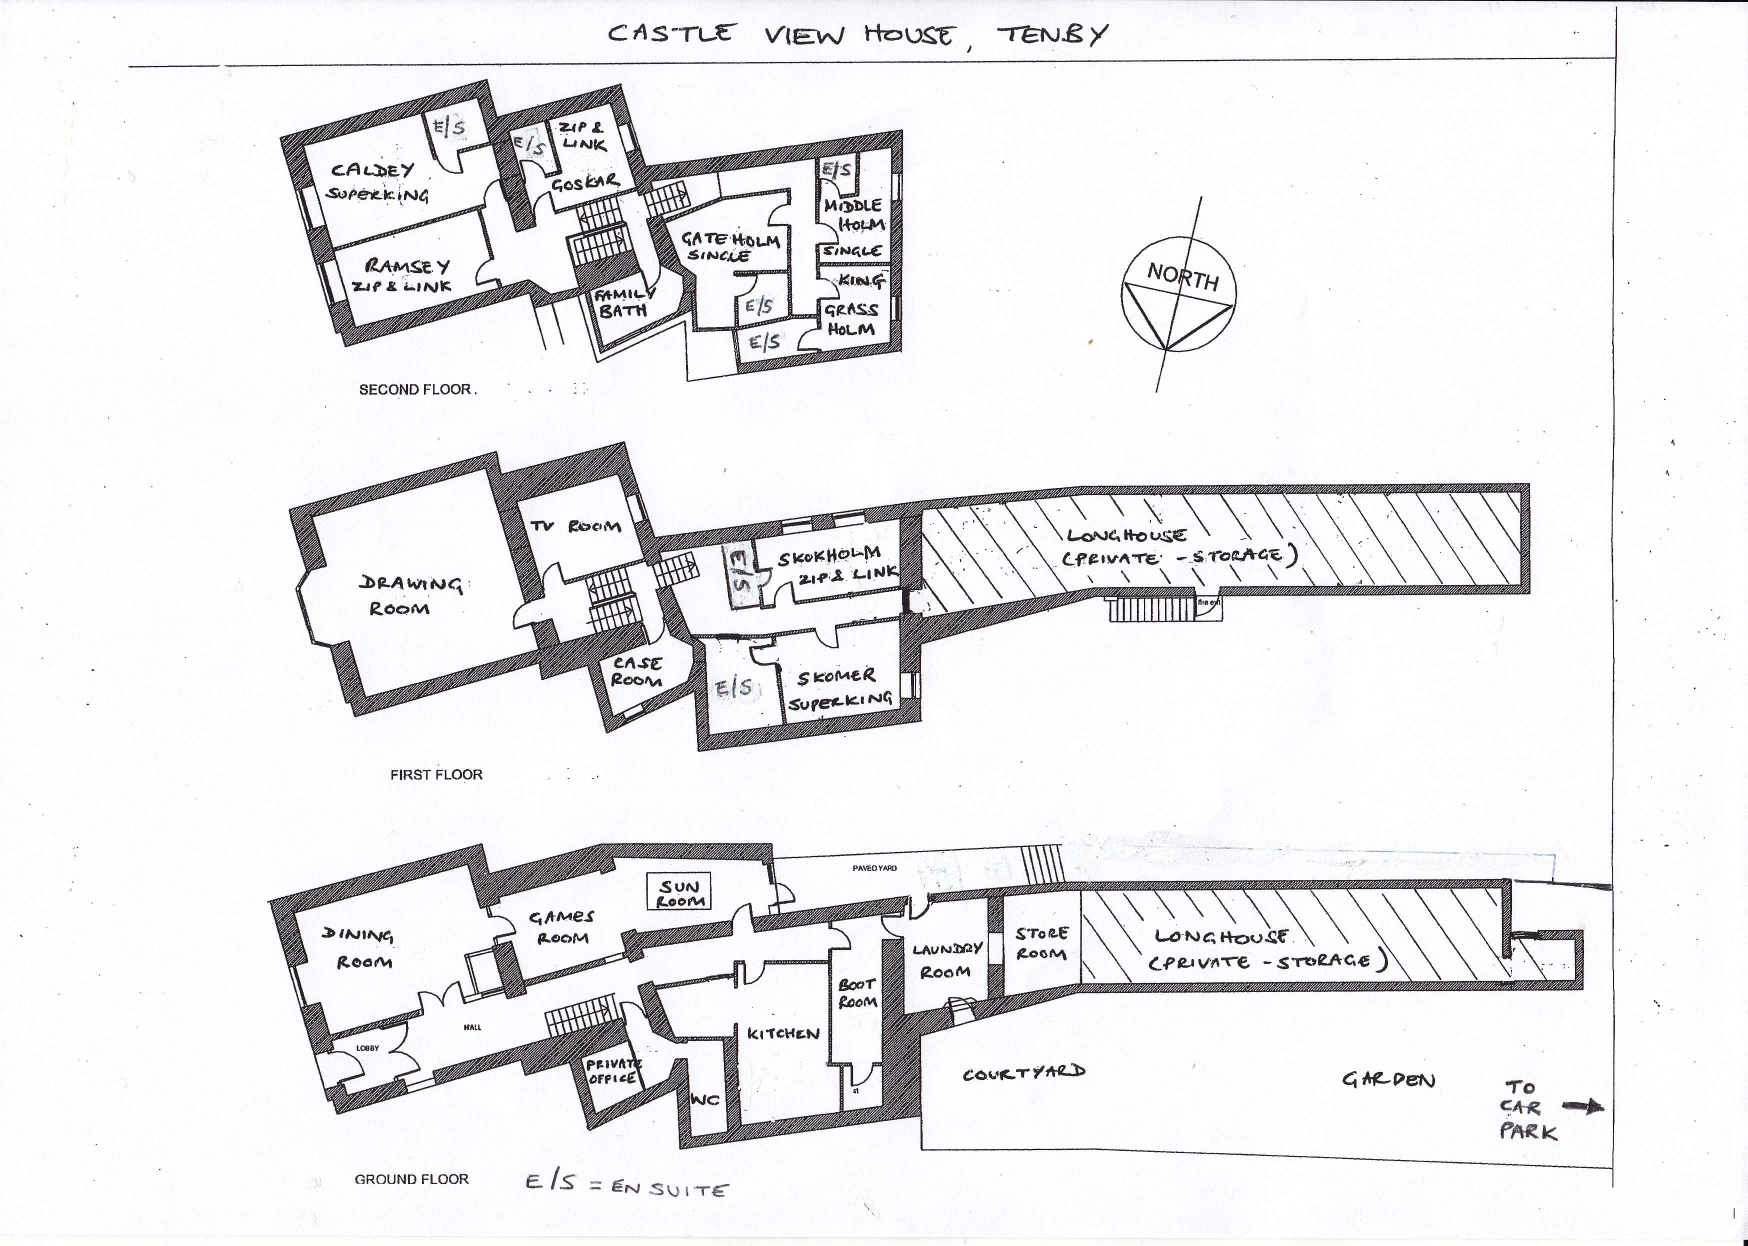 CASTLE VIEW HOUSE, TENBY
E/S
E/S
ZIP &
LINK
GOSKAR
CALDEY
SUPERKING
RAMSEY
ZIP & LINK
FAMILY
BATH
GATEHOLM
SINGLE
E/S
E/S
E/S
MIDDLE
HOLM
SINGLE
KING
GRASS
HOLM
NORTH
SECOND FLOOR.
DRAWING
ROOM
TV ROOM
CASE
ROOM
E/S
SKOKHOLM
ZIP & LINK
E/S
SKOMER
SUPERKING
LONGHOUSE
(PRIVATE - STORAGE)
FIRST FLOOR
DINING
ROOM
LOBBY
HALL
GAMES
ROOM
SUN
ROOM
PAVED YARD
PRIVATE
OFFICE
WC
KITCHEN
BOOT
ROOM
st
LAUNDRY
ROOM
STORE
ROOM
LONGHOUSE
(PRIVATE - STORAGE)
COURTYARD
GARDEN
TO
CAR
PARK
GROUND FLOOR
E/S = EN SUITE